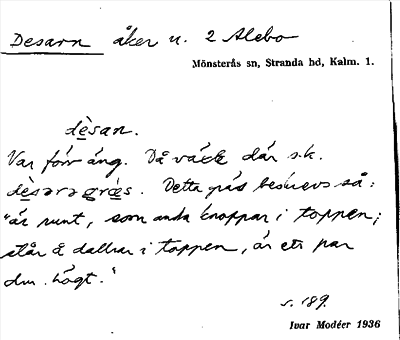 Desarn åker n. 2 Alebo
Mönsterås sn, Stranda hd, Kalm. l.
dèsan.
Var förr äng. Då växte där s.k.
dèsaragræs. Detta gräs beskrevs så:
"är runt, som andra knoppar i toppen;
står å dallrar i toppen, är ett par
dm. högt."
s. 189.
Ivar Modéer 1936